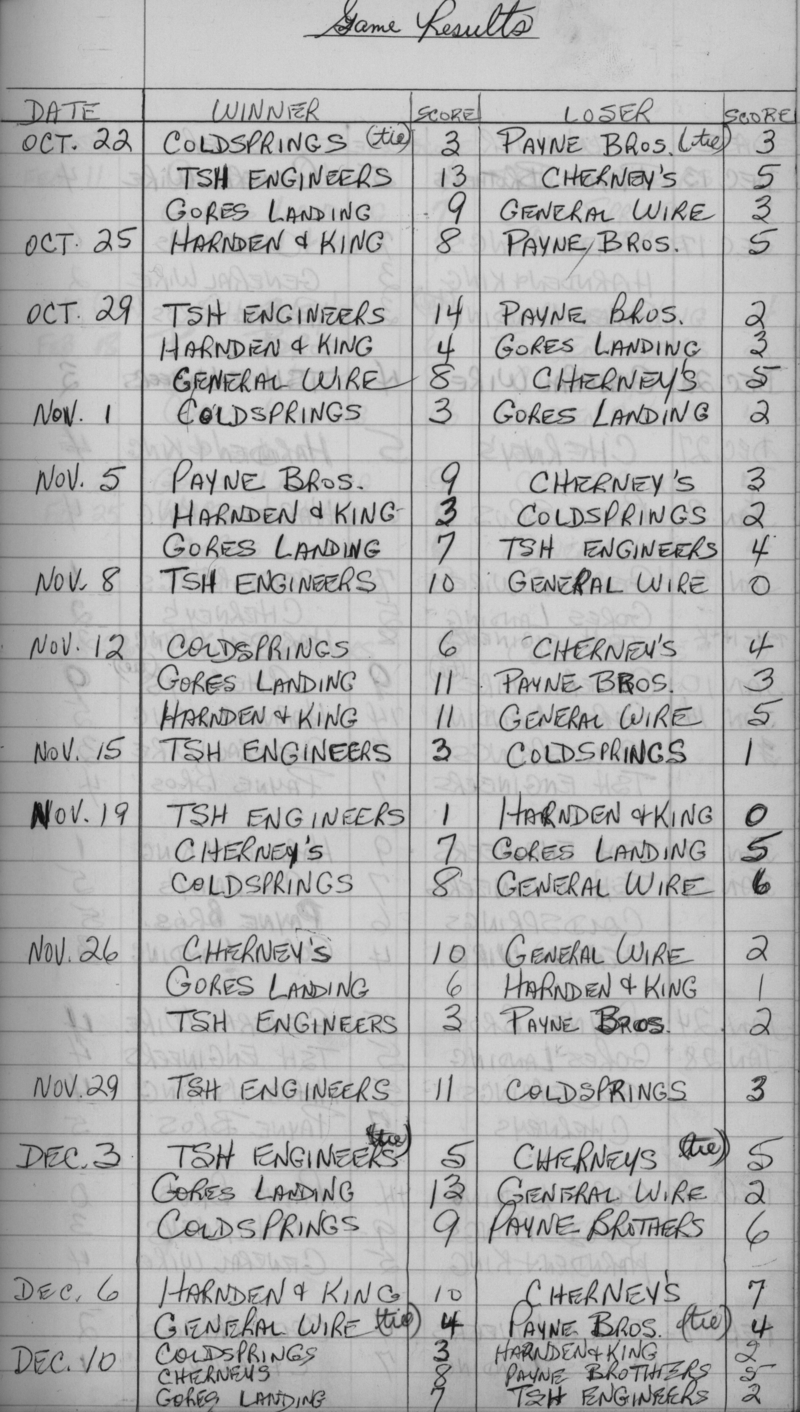 Game Results
DATE WINNER SCORE LOSER SCORE
OCT. 22 COLDSPRINGS (tie) 3 PAYNE BROS. (tie) 3
TSH ENGINEERS 13 CHERNEY'S 5
GORES LANDING 9 GENERAL WIRE 3
OCT. 25 HARNDEN & KING 8 PAYNE BROS. 5
OCT. 29 TSH ENGINEERS 14 PAYNE BROS. 2
HARNDEN & KING 4 GORES LANDING 3
GENERAL WIRE 8 CHERNEY'S 5
NOV. 1 COLDSPRINGS 3 GORES LANDING 2
NOV. 5 PAYNE BROS. 9 CHERNEY'S 3
HARNDEN & KING 3 COLDSPRINGS 2
GORES LANDING 7 TSH ENGINEERS 4
NOV. 8 TSH ENGINEERS 10 GENERAL WIRE 0
NOV. 12 COLDSPRINGS 6 CHERNEY'S 4
GORES LANDING 11 PAYNE BROS. 3
HARNDEN & KING 11 GENERAL WIRE 5
NOV. 15 TSH ENGINEERS 3 COLDSPRINGS 1
NOV. 19 TSH ENGINEERS 1 HARNDEN & KING 0
CHERNEY'S 7 GORES LANDING 5
COLDSPRINGS 8 GENERAL WIRE 6
NOV. 26 CHERNEY'S 10 GENERAL WIRE 2
GORES LANDING 6 HARNDEN & KING 1
TSH ENGINEERS 3 PAYNE BROS. 2
NOV. 29 TSH ENGINEERS 11 COLDSPRINGS 3
DEC. 3 TSH ENGINEERS (tie) 5 CHERNEYS (tie) 5
GORES LANDING 13 GENERAL WIRE 2
COLDSPRINGS 9 PAYNE BROTHERS 6
DEC. 6 HARNDEN & KING 10 CHERNEY'S 7
GENERAL WIRE (tie) 4 PAYNE BROS. (tie) 4
DEC. 10 COLDSPRINGS 3 HARNDEN & KING 2
CHERNEYS 8 PAYNE BROTHERS 5
GORES LANDING 7 TSH ENGINEERS 2